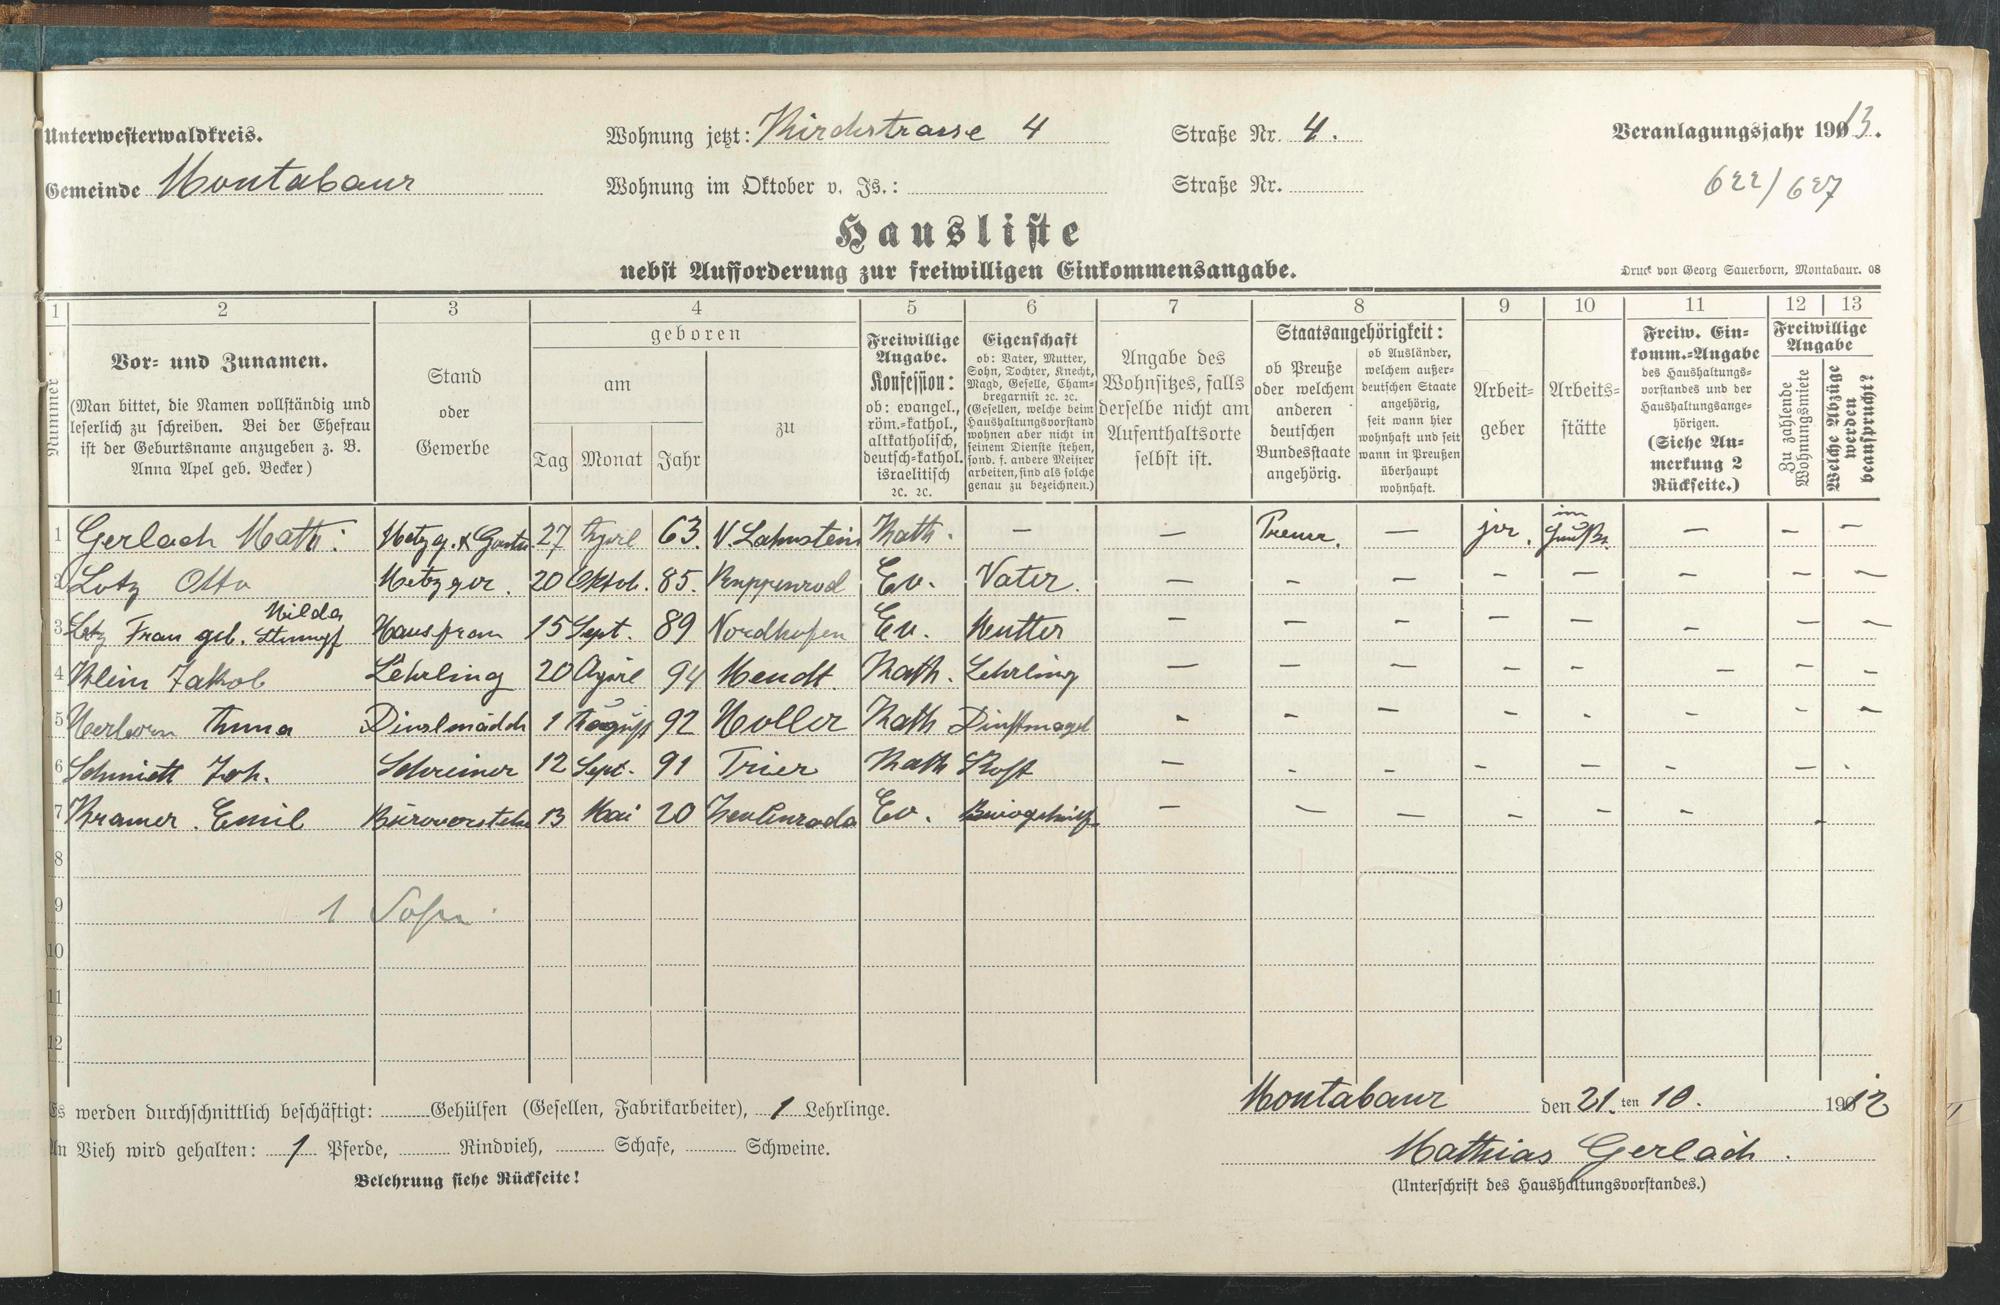 Unterwesterwaldkreis.
Wohnung jetzt: Kirchstrasse 4 Straße Nr. 4.
Veranlagungsjahr 1913.
Gemeinde Montabaur
Wohnung im Oktober v. Js.: Straße Nr.
622/627
Hausliste
nebst Aufforderung zur freiwilligen Einkommensangabe.
Druck von Georg Sauerborn, Montabaur. 08
1 2 3 4 5 6 7 8 9 10 11 12 13
Nummer
Vor- und Zunamen.
(Man bittet, die Namen vollständig und
leserlich zu schreiben. Bei der Ehefrau
ist der Geburtsname anzugeben z. B.
Anna Apel geb. Becker)
Stand
oder
Gewerbe
geboren
am
Tag Monat Jahr
zu
Freiwillige
Angabe.
Konfession:
ob: evangel.,
röm.-kathol.,
altkatholisch,
deutsch-kathol.
israelitisch
2c. 2c.
Eigenschaft
ob: Vater, Mutter,
Sohn, Tochter, Knecht,
Magd, Geselle, Cham-
bregarnist 2c. 2c.
(Gesellen, welche beim
Haushaltungsvorstand
wohnen aber nicht in
seinem Dienste stehen,
sond. f. andere Meister
arbeiten, sind als solche
genau zu bezeichnen.)
Angabe des
Wohnsitzes, falls
derselbe nicht am
Aufenthaltsorte
selbst ist.
Staatsangehörigkeit:
ob Preuße
oder welchem
anderen
deutschen
Bundesstaate
angehörig.
ob Ausländer,
welchem außer-
deutschen Staate
angehörig,
seit wann hier
wohnhaft und seit
wann in Preußen
überhaupt
wohnhaft.
Arbeit-
geber
Arbeits-
stätte
Freiw. Ein-
komm.-Angabe
des Haushaltungs-
vorstandes und der
Haushaltungsange-
hörigen.
(Siehe An-
merkung 2
Rückseite.)
Freiwillige
Angabe
Zu zahlende
Wohnungsmiete
Welche Abzüge
werden
beansprucht?
1 Gerlach Math: Metzg. & 27 April 63. N. Lahnstein Kath. — — — — — —
2 Lotz Otto Metzger. 20 Oktob. 85. Ruppenrod Ev. Vater. — — — — — — — —
3 Lotz Frau geb. Hilda Stumpf Hausfrau 15 Sept. 89 Nordhofen Ev. Mutter — — — — — — — —
4 Klein Jakob Lehrling 20 April 94 Meudt. Kath. Lehrling — — — — — — — —
5 Anna 1 August 92 Holler Kath Dinstmagd - — — — — — — -
6 Schmidt Joh. Schreiner 12 Sept. 91 Trier Kath Kost — - - - — - — .
7 Kramer. Emil Bürovorsteher 13 Mai 20 Zeulenroda Ev. Bürogehülf — — — — — — -
8
9 1
10
11
12
Es werden durchschnittlich beschäftigt: Gehülfen (Gesellen, Fabrikarbeiter), 1 Lehrlinge.
Montabaur den 21. ten 10. 1912
An Vieh wird gehalten: 1 Pferde, Rindvieh, Schafe, Schweine.
Mathias Gerlach.
Belehrung siehe Rückseite!
(Unterschrift des Haushaltungsvorstandes.)